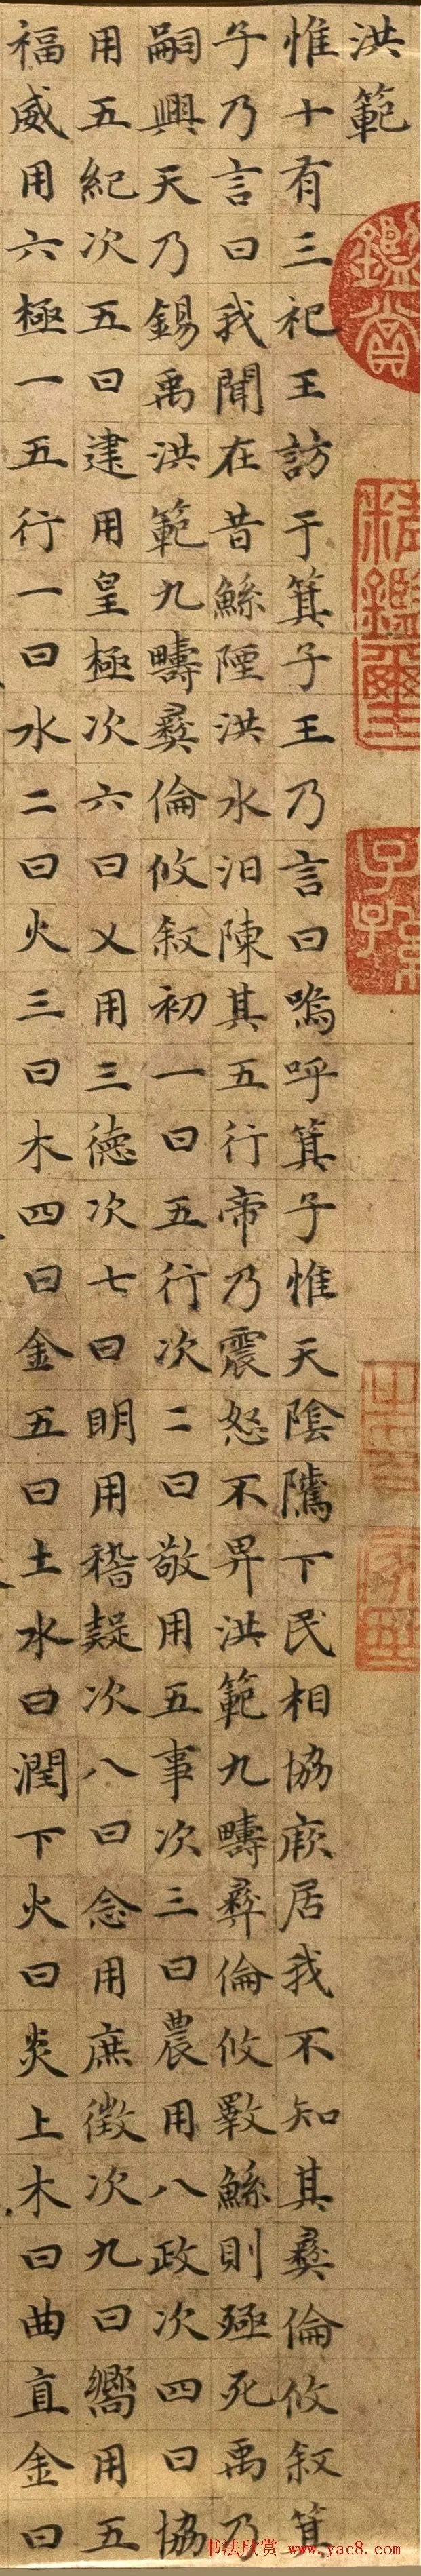 洪範
惟十有三祀王訪于箕子王乃言曰嗚呼箕子惟天陰隲下民相協厥居我不知其彝倫攸叙箕
子乃言曰我聞在昔鯀陻洪水汩陳其五行帝乃震怒不畀洪範九疇彝倫攸斁鯀則殛死禹乃
嗣興天乃錫禹洪範九疇彝倫攸叙初一曰五行次二曰敬用五事次三曰農用八政次四曰協
用五紀次五曰建用皇極次六曰乂用三德次七曰明用稽疑次八曰念用庶徵次九曰嚮用五
福威用六極一五行一曰水二曰火三曰木四曰金五曰土水曰潤下火曰炎上木曰曲直金曰
鑑賞
精鑑璽
子孫
书法欣赏 www.yac8.com